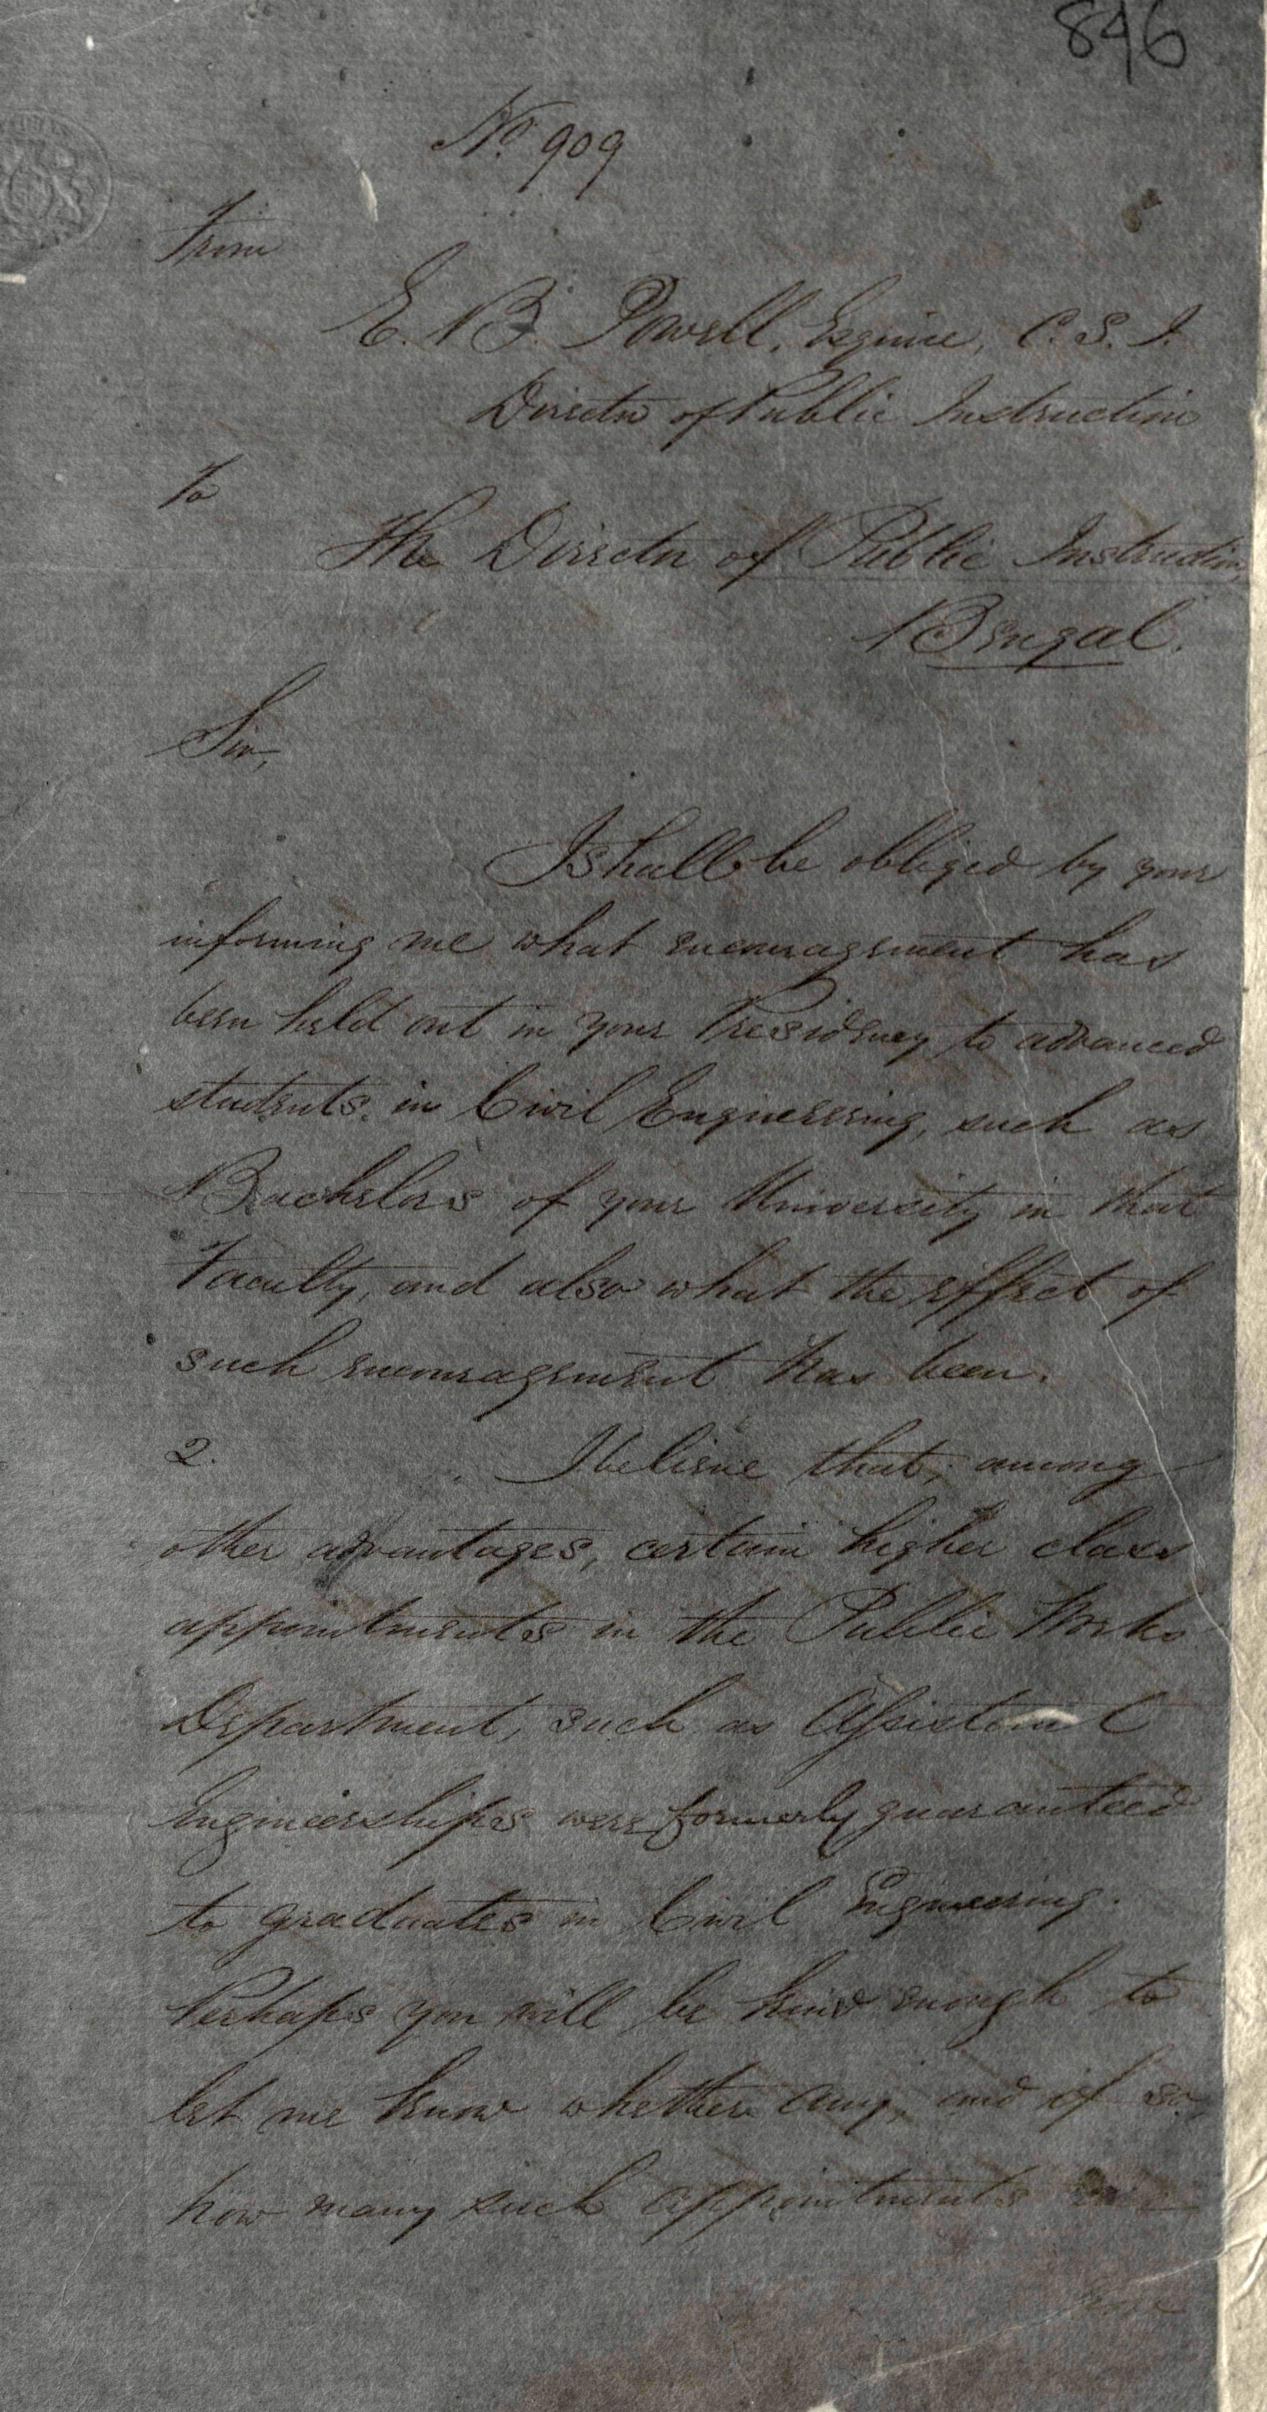 896
No. 909
From
E. B. Powell, Esquire, C. S. I.
Director of Public Instruction
To
The Director of Public Instruction,
Bengal.
Sir,
I shall be obliged by your
informing me what encouragement has
been held out in your Presidency to advanced
students in Civil Engineering, such as
Bachelors of your University in that
Faculty, and also what the effect of
such encouragement has been.
2. I believe that, among
other advantages, certain higher class
appointments in the Public Works
Department, such as Assistant
Engineerships were formerly guaranteed
to graduates in Civil Engineering.
Perhaps you will be kind enough to
let me know whether any, and if so,
how many such appointments are
now